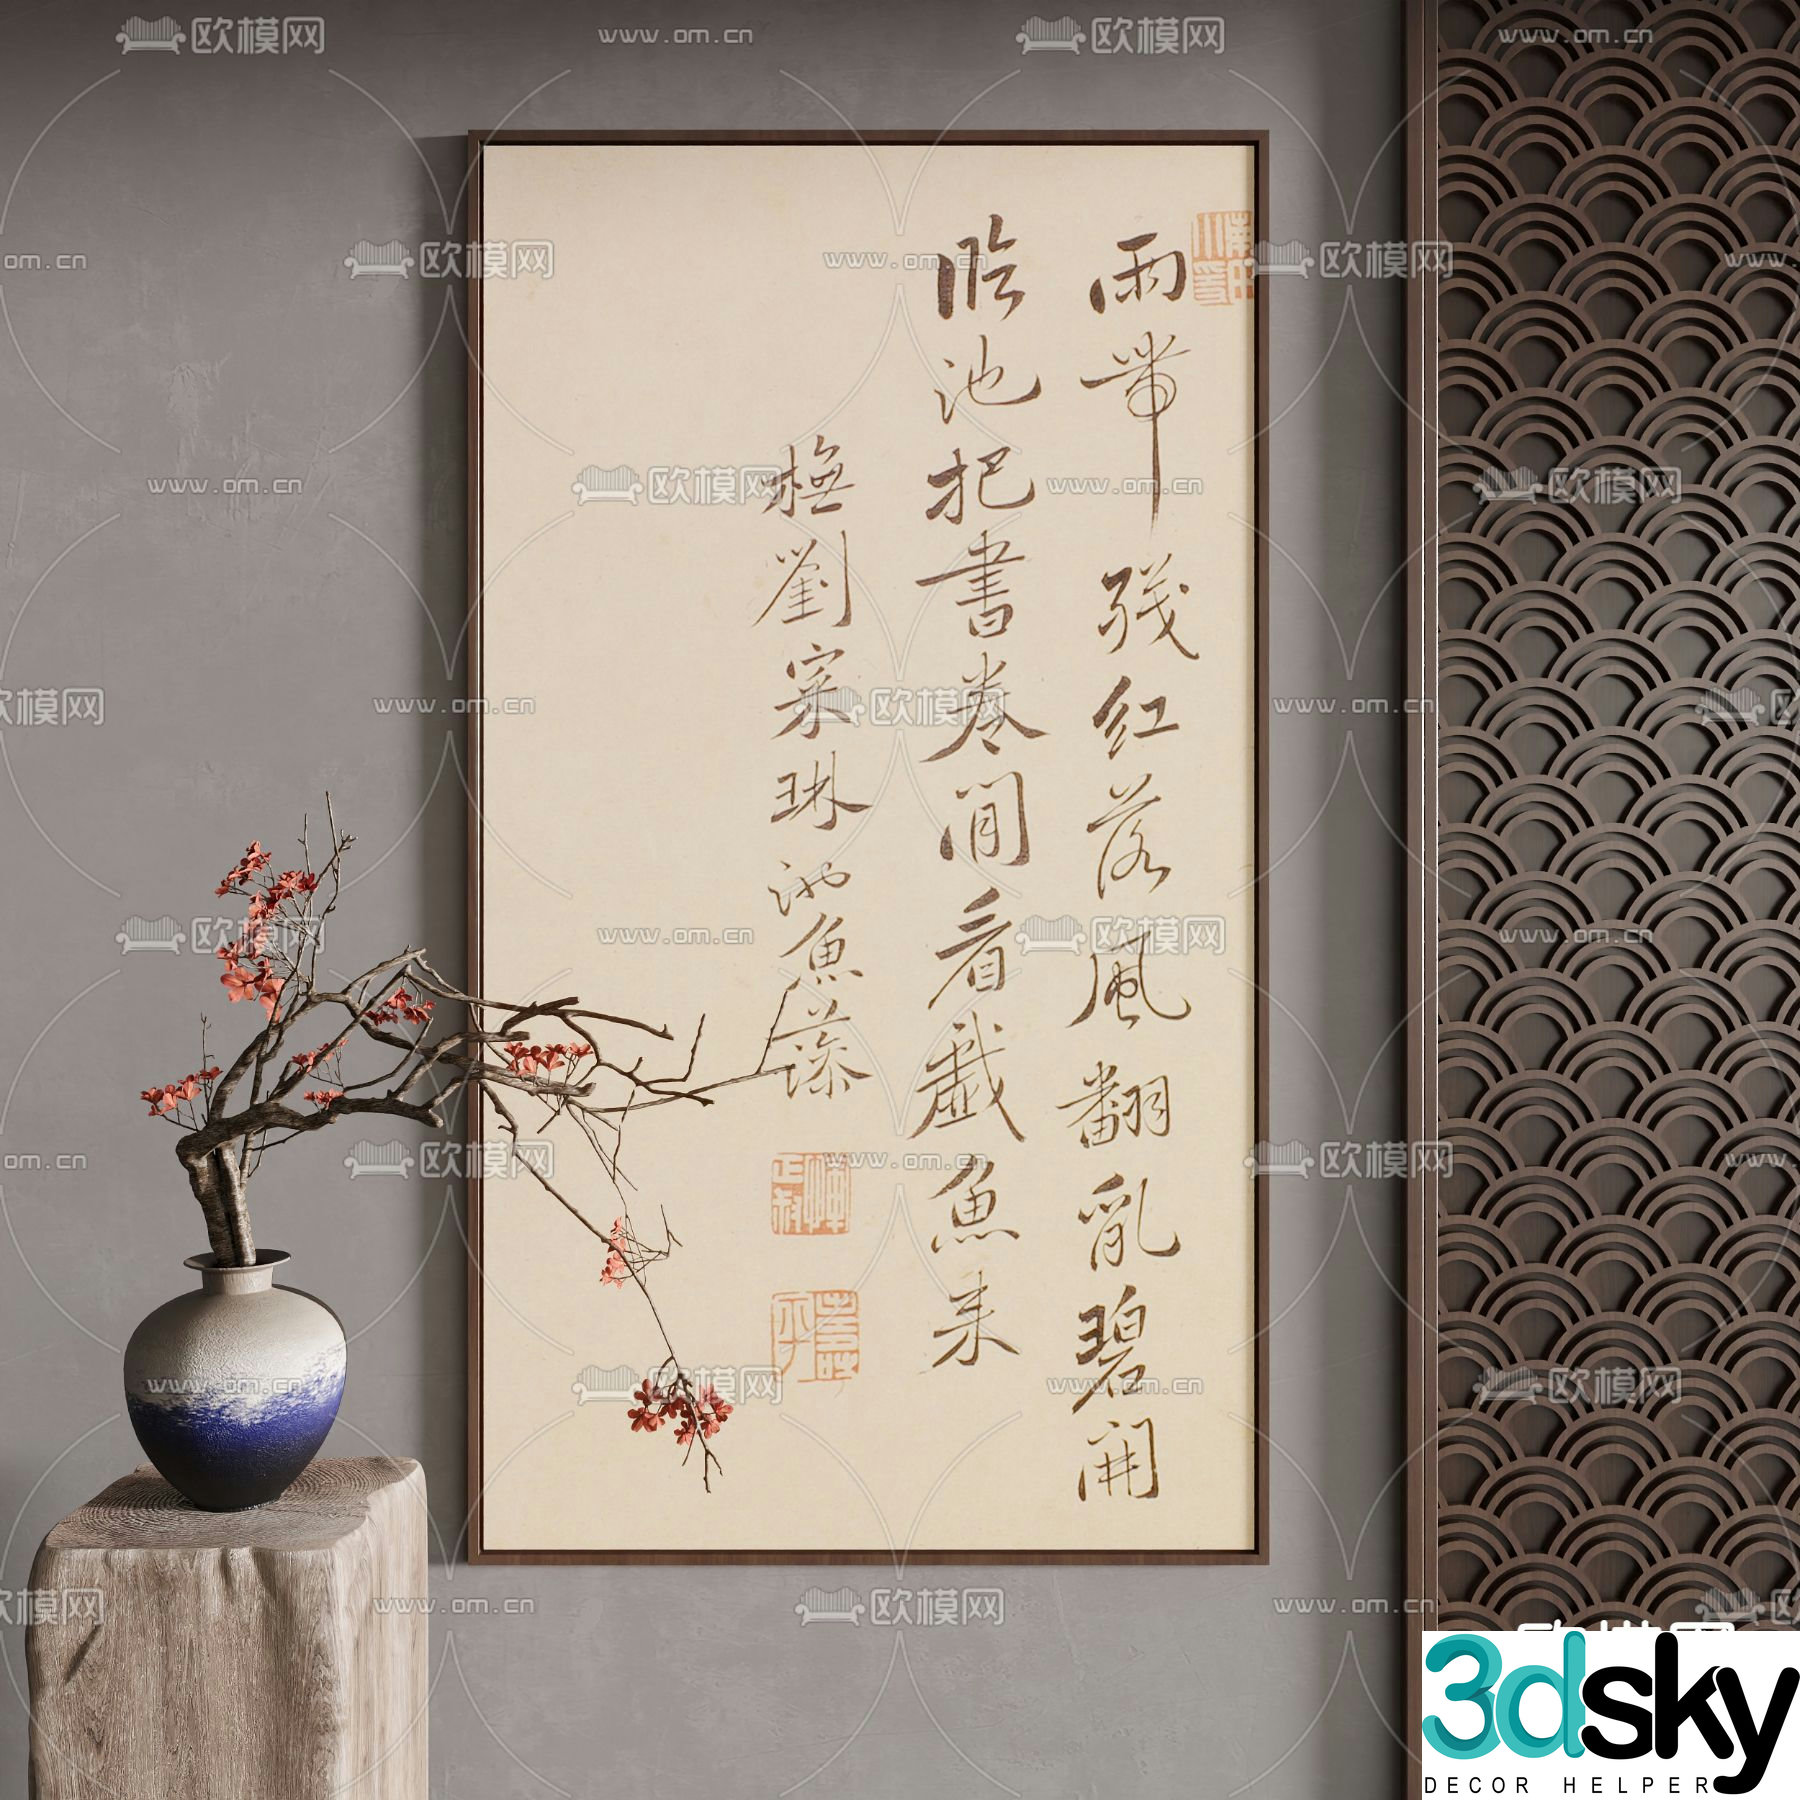 雨帶殘紅落風翻亂碧開
臨池把書卷閒看戲魚來
橅劉寀琳池魚藻
欧模网
www.om.cn
3dsky
DECOR HELPER